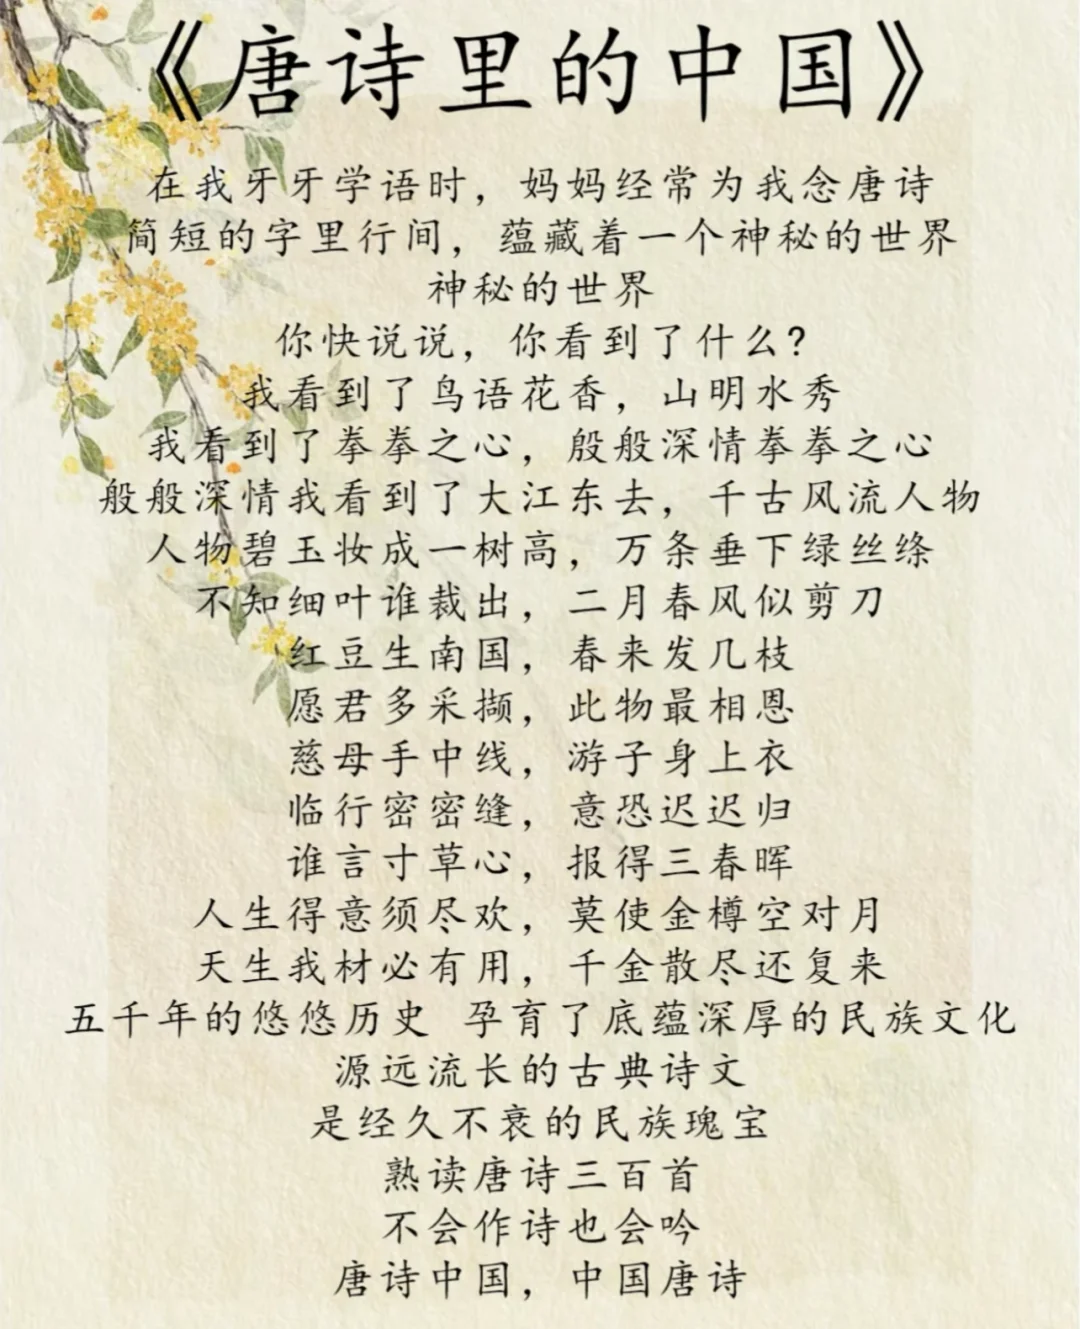 《唐诗里的中国》
在我牙牙学语时，妈妈经常为我念唐诗
简短的字里行间，蕴藏着一个神秘的世界
神秘的世界
你快说说，你看到了什么？
我看到了鸟语花香，山明水秀
我看到了拳拳之心，殷般深情拳拳之心
般般深情我看到了大江东去，千古风流人物
人物碧玉妆成一树高，万条垂下绿丝绦
不知细叶谁裁出，二月春风似剪刀
红豆生南国，春来发几枝
愿君多采撷，此物最相恩
慈母手中线，游子身上衣
临行密密缝，意恐迟迟归
谁言寸草心，报得三春晖
人生得意须尽欢，莫使金樽空对月
天生我材必有用，千金散尽还复来
五千年的悠悠历史 孕育了底蕴深厚的民族文化
源远流长的古典诗文
是经久不衰的民族瑰宝
熟读唐诗三百首
不会作诗也会吟
唐诗中国，中国唐诗